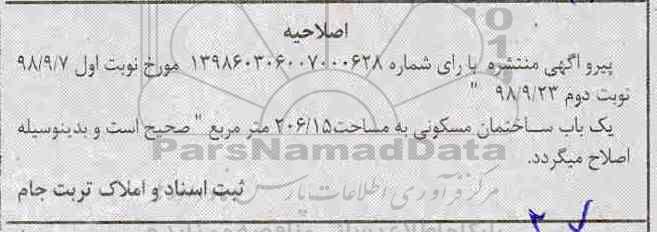 اصلاحیه
پیرو آگهی منتشره با رای شماره ۱۳۹۸۶۰۳۰۶۰۰۷۰۰۰۶۲۸ مورخ نوبت اول ۹۸/۹/۷
نوبت دوم ۹۸/۹/۲۳ "
یک باب ساختمان مسکونی به مساحت۲۰۶/۱۵ متر مربع " صحیح است و بدینوسیله
اصلاح میگردد.
ParsNamadData
ثبت اسناد و املاک تربت جام
مرکز فرآوری اطلاعات پارس